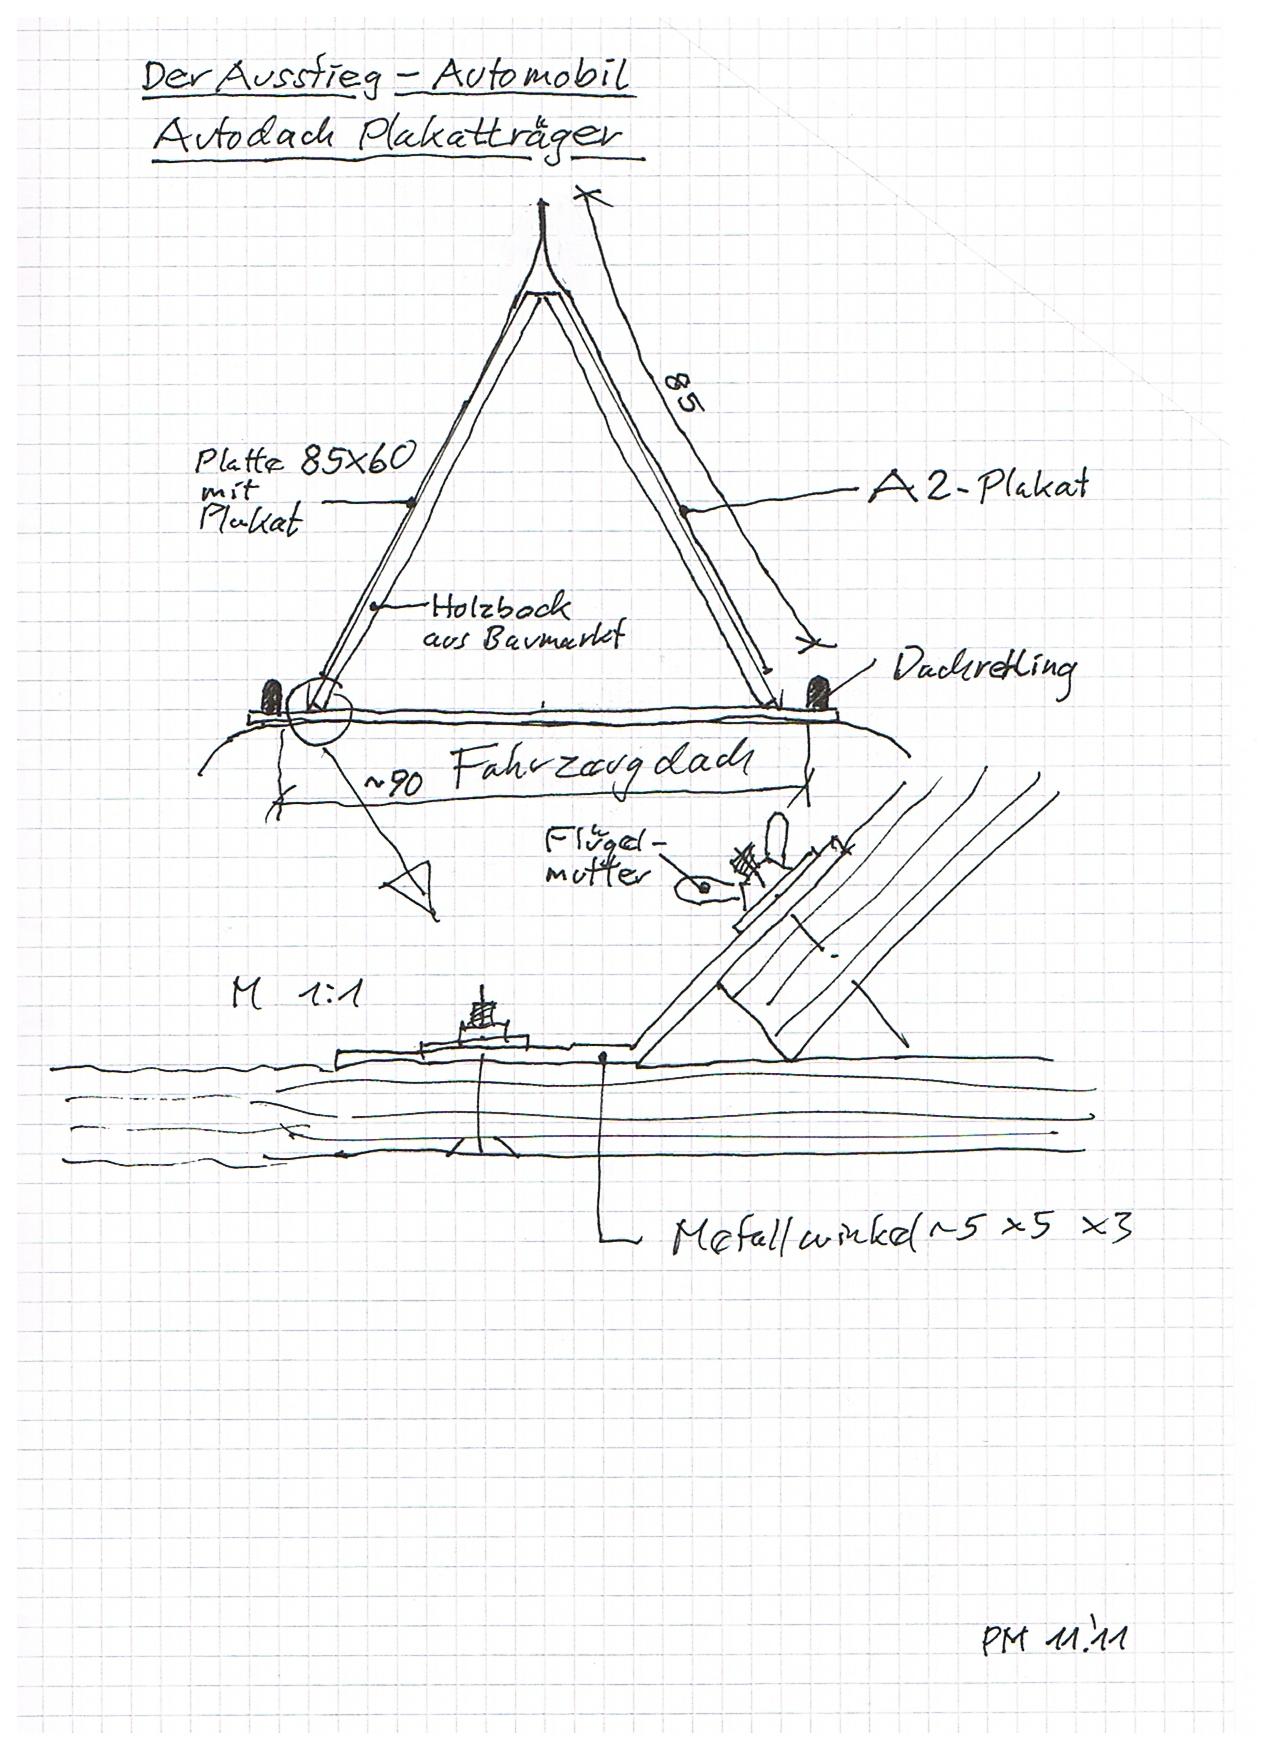 Der Ausstieg - Automobil
Autodach Plakatträger
85
Platte 85x60
mit
Plakat
A2-Plakat
Holzbock
aus Baumarkt
Dachreling
~90 Fahrzeugdach
Flügel-
mutter
M 1:1
Metallwinkel ~5 x5 x3
PM 11.'11